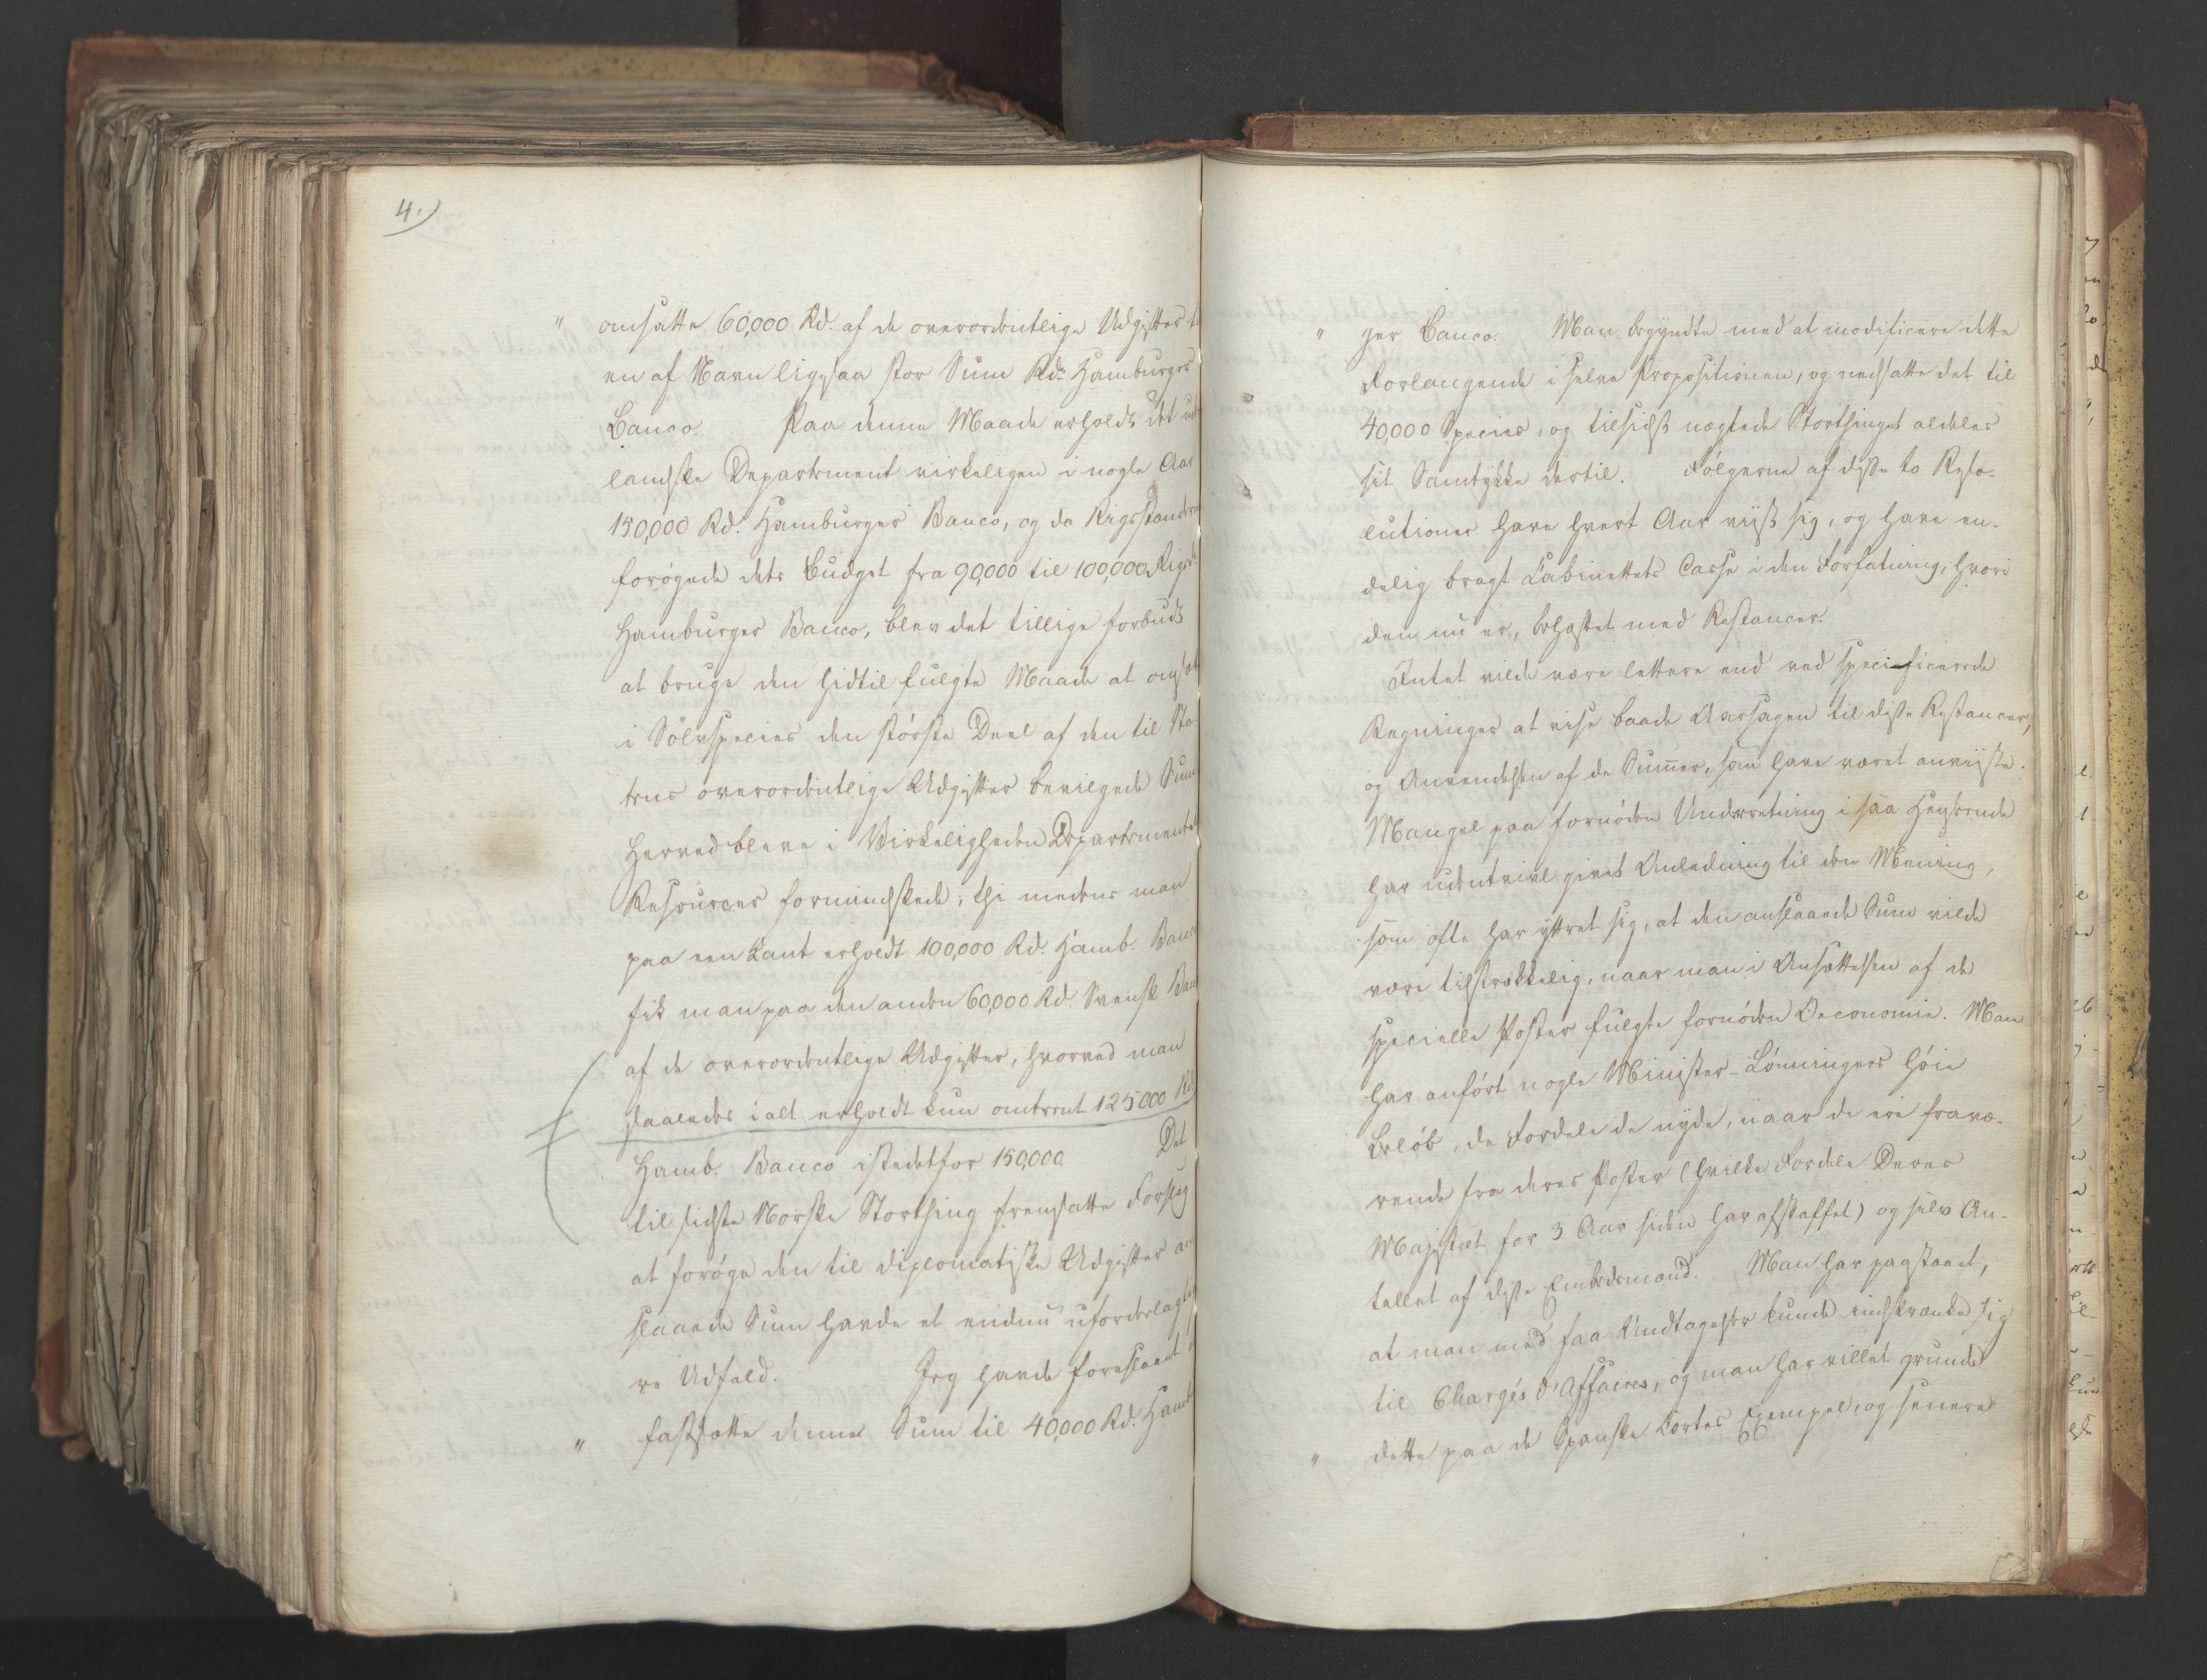 4.)
" omsatte 60,000 Rd. af de overordentlige Udgifter t
en af Navn ligesaa stor Sum Rdr Hamburger
Banco. Paa denne Maade erholdt det ud
landske Departement virkeligen i nogle Aar
150,000 Rd. Hamburger Banco, og da Rigsstændern
forøgede dets Budget fra 90,000 til 100,000 Rigsd
Hamburger Banco, blev det tillige forbudt
at bruge den hidtil fulgte Maade at omsæt
i Sølvspecies den største Deel af den til Sta
tens overordentlige Udgifter bevilgede Sum
Herved bleve i Virkeligheden Departementet
Resourcer formindskede; thi medens man
paa een Kant erholdt 100,000 Rd. Hamb. Banc
fik man paa den anden 60,000 Rd Svensk Ban
af de overordentlige Udgifter, hvorved man
saaledes i alt erholdt kun omtrent 125000 Rd
Hamb. Banco istedetfor 150,000. Det
til sidste Norske Storthing fremsatte Forslag
at forøge den til diplomatiske Udgifter an
slaaede Sum havde et endnu ufordeelagtig
re Udfald. Jeg havde foreslaaet
" fastsætte denne Sum til 40,000 Rd. Hamb
" ger Banco. Man begyndte med at modificere dette
Forlangende i selve Propositionen, og nedsatte det til
40,000 Species, og tilsidst nægtede Storthinget aldeles
sit Samtykke dertil. Følgerne af disse to Reso-
lutioner have hvert Aar viist sig, og have en-
delig bragt Cabinettets Casse i den Forfatning, hvori
den nu er, behæftet med Restancer.
Intet vilde være lettere end ved specificerede
Regninger at vise baade Aarsagen til disse Restancer,
og Anvendelsen af de Summer, som have været anviiste.
Mangel paa fornøden Underretning i saa Henseende
har udentvivl givet Anledning til den Mening,
som ofte har yttret sig, at den anslaaede Sum vilde
være tilstrækkelig, naar man i Ansættelsen af de
specielle Poster fulgte fornøden Oeconomie. Man
har anført nogle Minister-Lønningers høie
Beløb, de Fordele de nyde, naar de ere fravæ-
rende fra deres Poster (hvilke Fordele Deres
Majestæt for 3 Aar siden har afskaffet) og selv An-
tallet af disse Embedsmænd. Man har paastaaet,
at man med faa Undtagelser kunde indskrænke sig
til Chargés d'Affaires, og man har villet grunde
" dette paa de Spanske Cortes Exempel, og senere